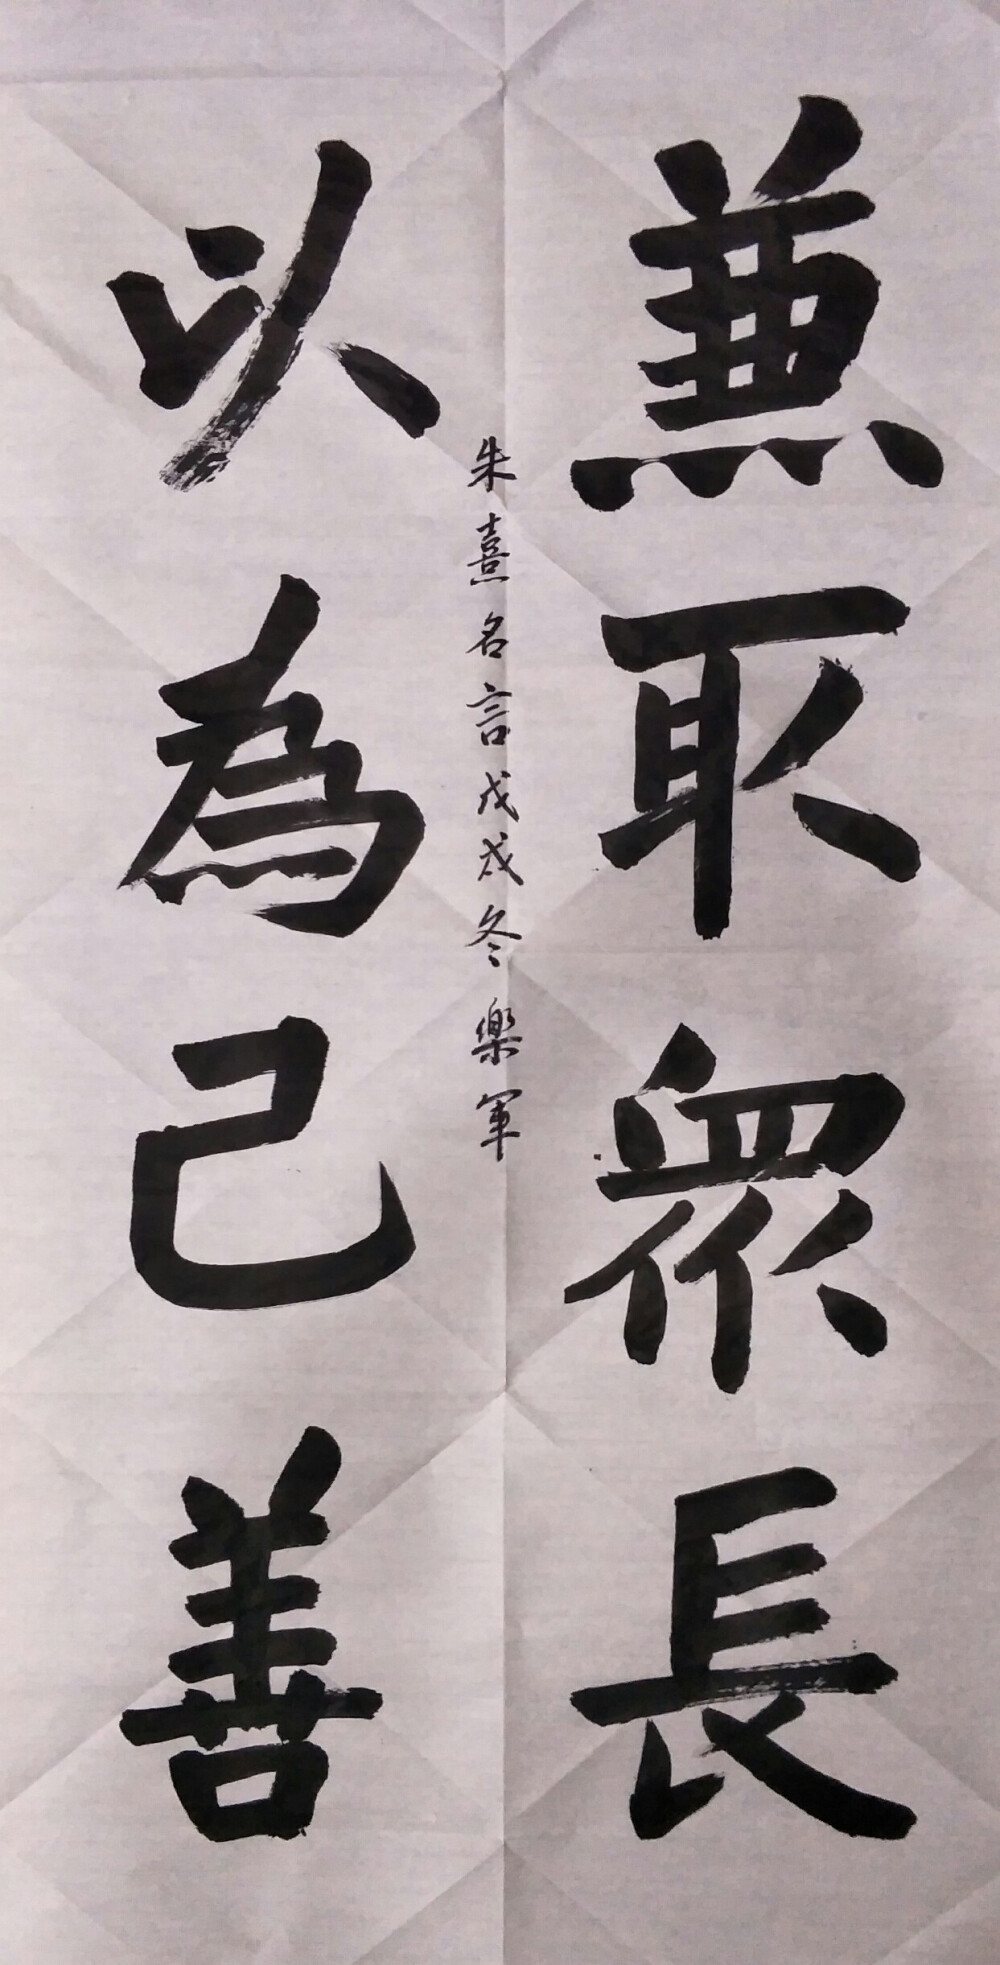 兼取眾長
以為己善
朱熹名言戊戌冬樂軍